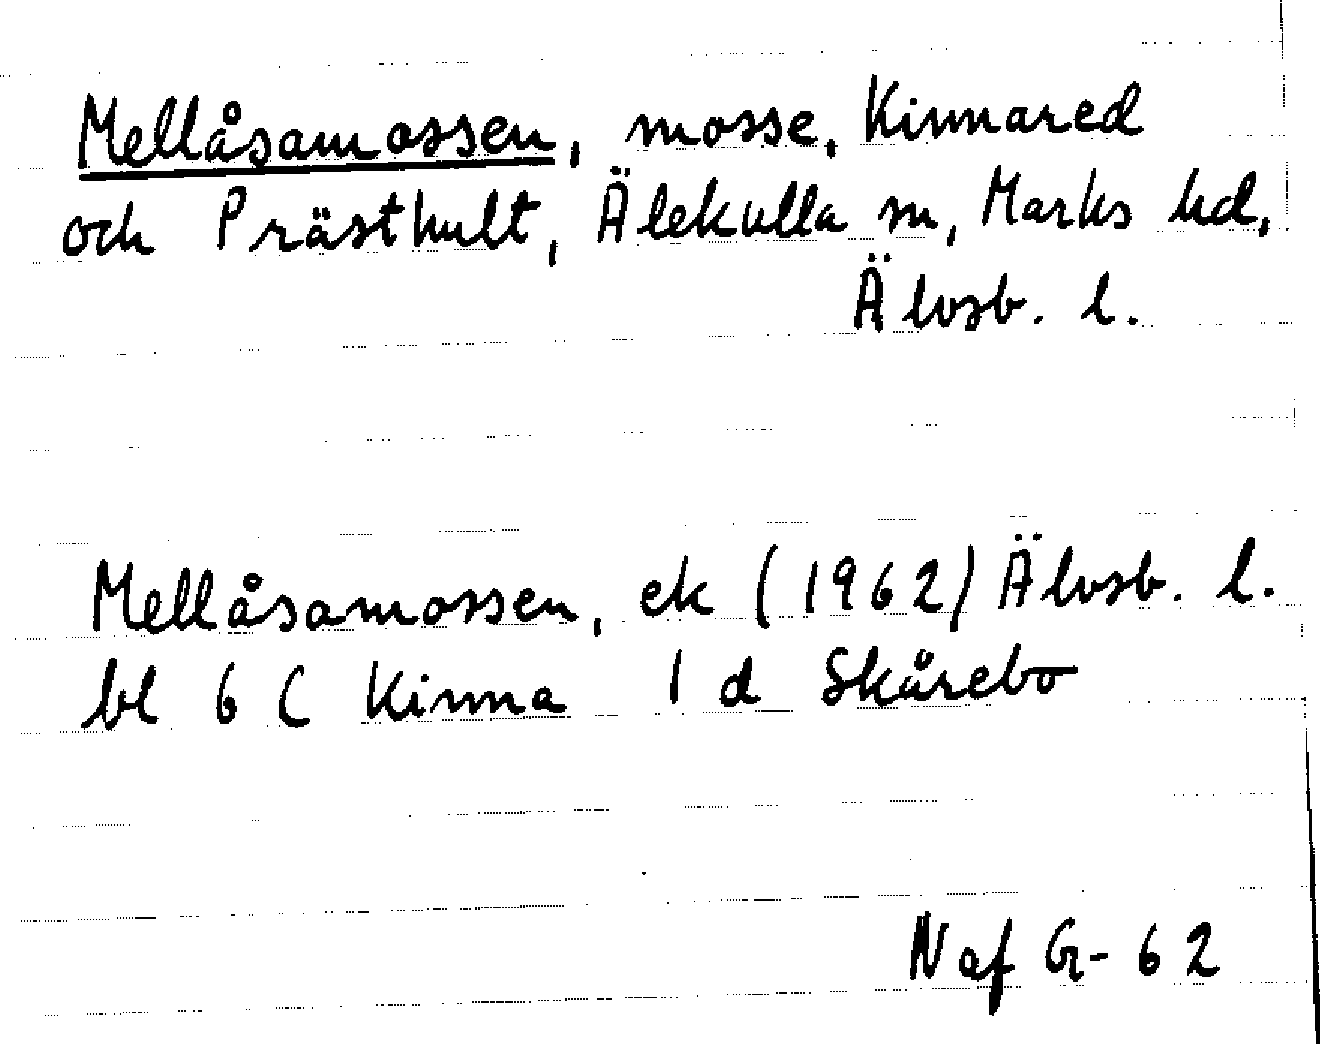 Mellåsamossen, mosse, Kinnared
och Prästhult, Älekulla sn, Marks hd,
Älvsb. l.
Mellåsamossen, ek (1962) Älvsb. l.
bl 6 C Kinna 1 d Skårebo
N af G-62